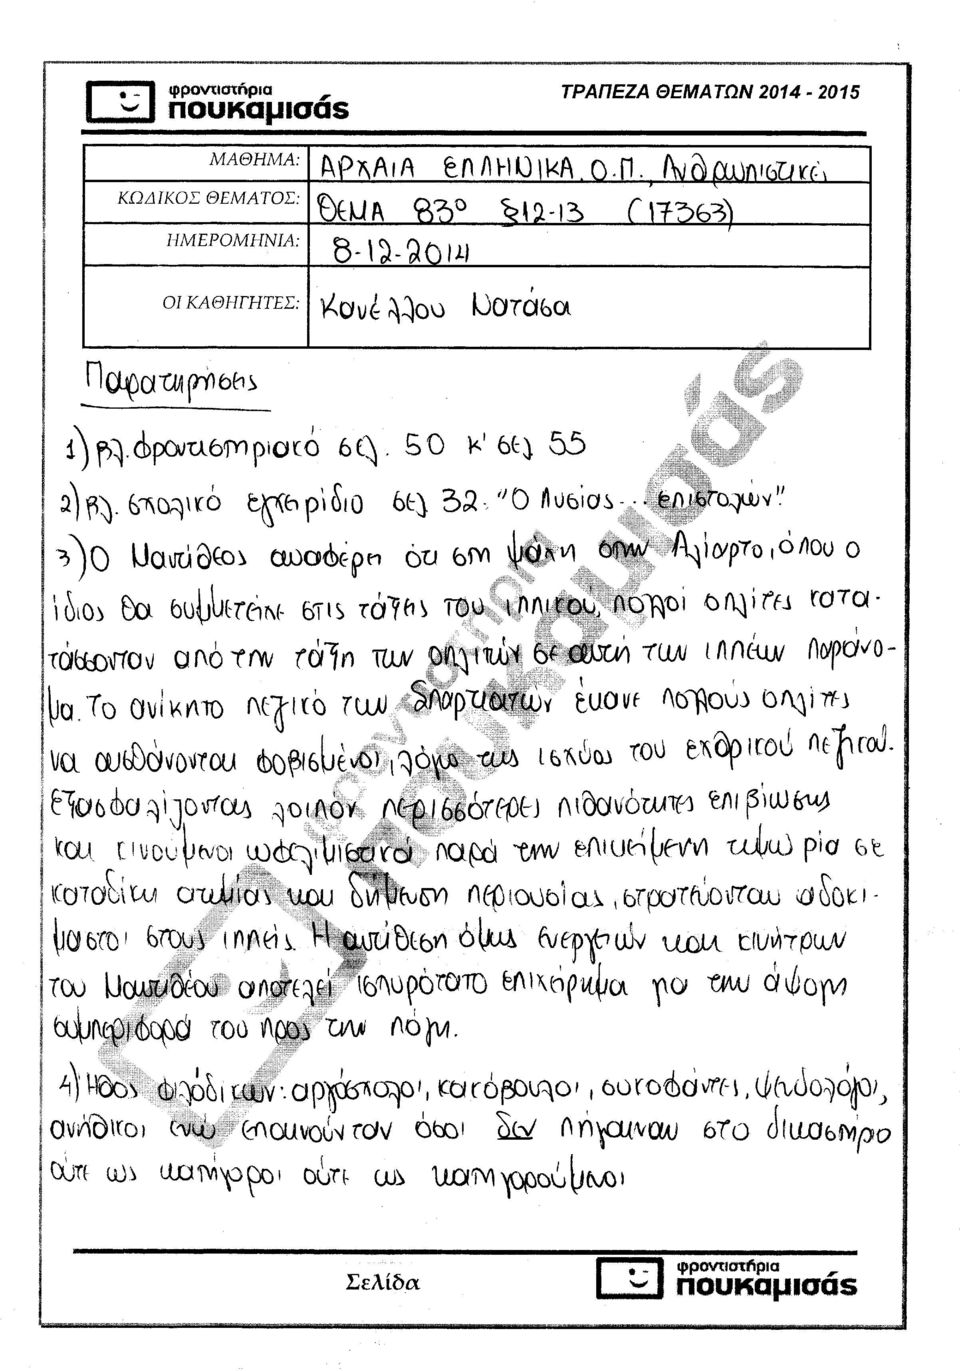 φροντιστήρια
πουκαμισάς
ΤΡΑΠΕΖΑ ΘΕΜΑΤΩΝ 2014 - 2015
ΜΑΘΗΜΑ: ΑΡΧΑΙΑ ΕΛΛΗΝΙΚΑ Ο.Π. Ανθρωπιστικές
ΚΩΔΙΚΟΣ ΘΕΜΑΤΟΣ: ΘΕΜΑ 83º §12-13 (17363)
ΗΜΕΡΟΜΗΝΙΑ: 8-12-2014
ΟΙ ΚΑΘΗΓΗΤΕΣ: Κανέλλου Νατάσα
Παρατηρήσεις
1) βλ. φροντιστηριακό σελ. 50 κ' σελ 55
2) βλ. σχολικό εγχειρίδιο σελ 32: "Ο Λυσίας... επιστολών".
3) Ο Μαντίθεος αναφέρει ότι στη μάχη στην Αλίαρτο, όπου ο
ίδιος θα συμμετείχε στις τάξεις του ιππικού, πολλοί οπλίτες κατα-
τάσσονταν από την τάξη των οπλιτών σε αυτή των ιππέων παράνο-
μα. Το ανίκητο πεζικό των Σπαρτιατών έκανε πολλούς οπλίτες
να αισθάνονται φοβισμένοι, λόγω της ισχύος του εχθρικού πεζικού.
Εξασφαλίζοντας λοιπόν περισσότερες πιθανότητες επιβίωσης
και κινούμενοι ωφελιμιστικά παρά την επικείμενη τιμωρία σε
καταδίκη ατιμίας και δήμευση περιουσίας, στρατεύονταν αδοκι-
μαστοι στους ιππείς. Η αντίθεση όμως ενεργειών και κινήτρων
του Μαντιθέου αποτελεί ισχυρότατο επιχείρημα για την άψογη
συμπεριφορά του προς την πόλη.
4) Ήθος φιλόδικων: αργόσχολοι, κακόβουλοι, συκοφάντες, ψευδολόγοι,
ανήθικοι ενώ επαινούνταν όσοι δεν πήγαιναν στο δικαστήριο
ούτε ως κατήγοροι ούτε ως κατηγορούμενοι
Σελίδα
φροντιστήρια
πουκαμισάς
φροντιστήρια
πουκαμισάς